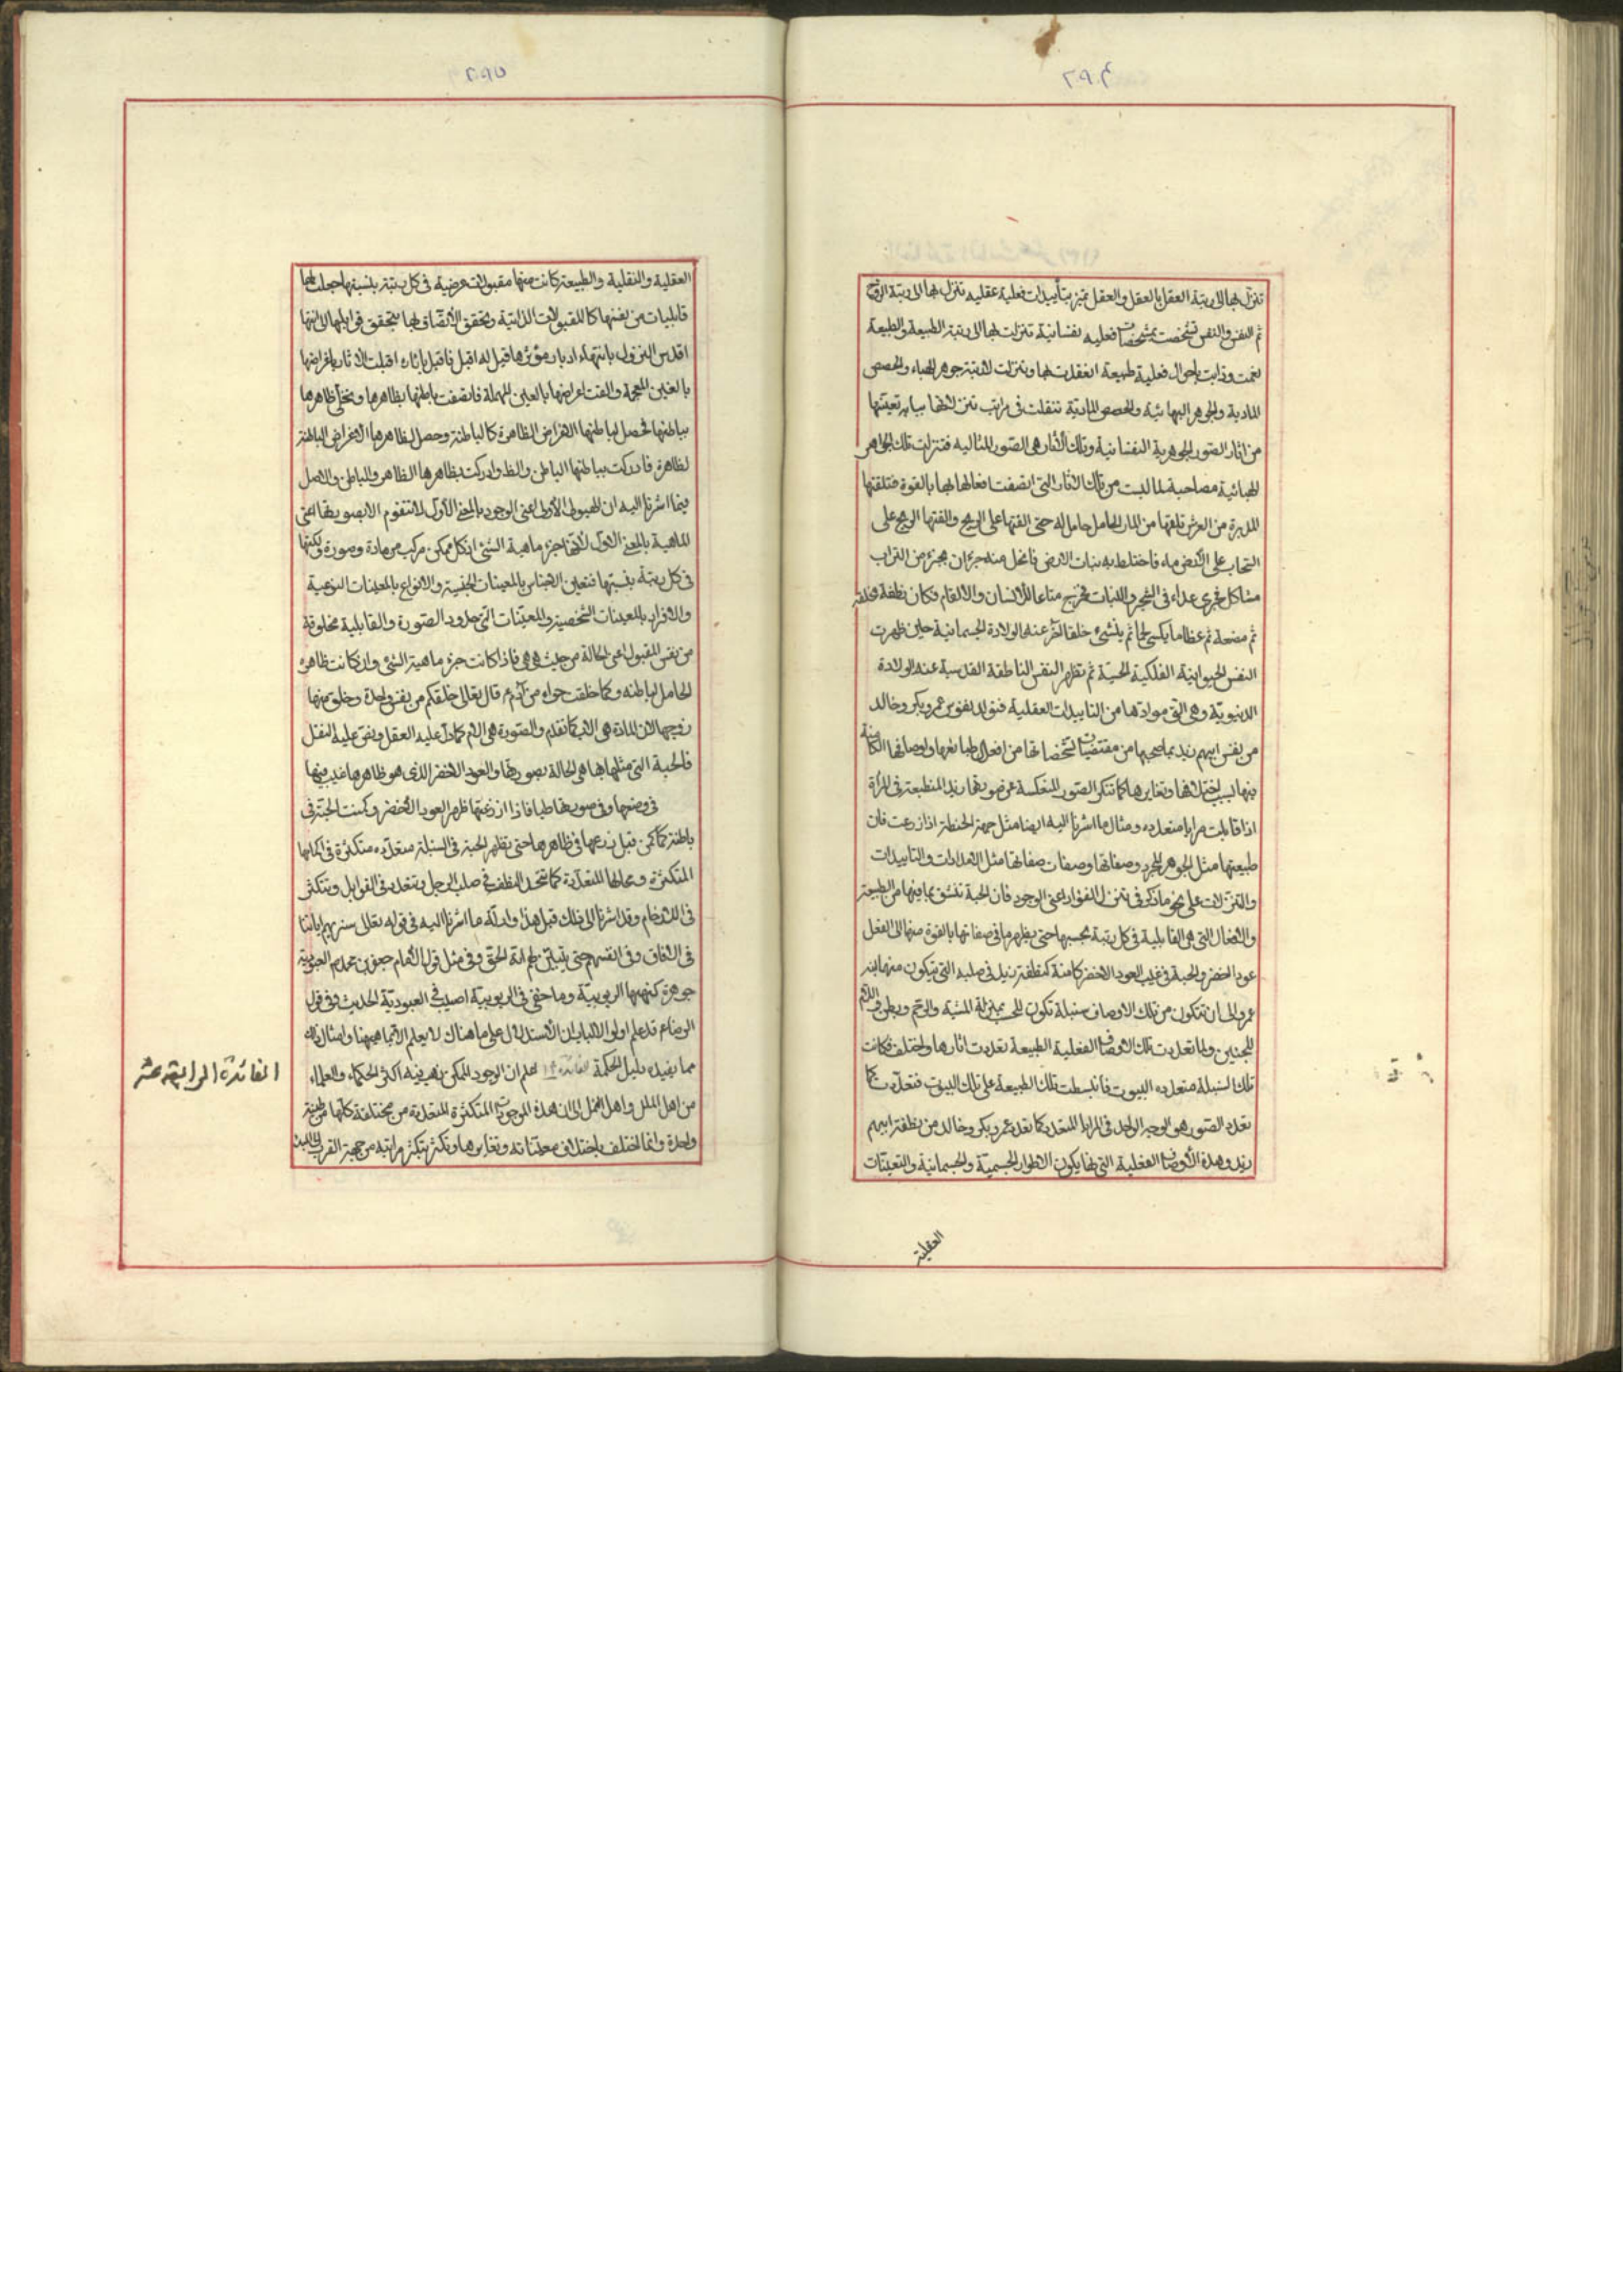 ٢٩٤
تنزل بها الى رتبة العقل بالعقل والعقل تميز بتأييدات فعلية عقليه تنزل بها الى رتبة الروح
ثم النفس والنفس تشخصت بمشخصات فعليه نفسانية تنزلت بها الى رتبة الطبيعة والطبيعة
نعمت وذابت باحوال فعلية طبيعة انعقدت بها وتنزلت لا رتبة جوهر الهباء والحصص
المادية والجوهر الهبائية والحصص المادية تنقلت فى مراتب تنزلاتها
من اثار الصور الجوهرية النفسانية وتلك الاثار هى الصور المثاليه فتنزلت تلك الجواهر
الهبائية مصاحبة لما لبست من تلك الاثار التى اتصفت افعالها بها بالقوة فتلقتها
المدبرة من العرش تلقفها من النار الحامل حامله حتى القتها على الريح والقتها الريح على
السحاب على الارض ماء فاختلط به نبات الارض فانحل منه جزءان بجزء من التراب
مشاكل فجرى غذاء فى الشجر والنبات فخرج متاعا للانسان والانعام فكان نطفة فعلقة
ثم مضغة ثم عظاما يكسى لحما ثم ينشئ خلقا اخر عند الولادة الجسمانية حين ظهرت
النفس الحيوانية الفلكية الحسية ثم تظهر النفس الناطقة القدسية عند الولادة
الدنيوية وهى التى موادها من التاييدات العقلية فتولد نفوس عمرو وبكر وخالد
من نفس ابيهم زيد بما صحبها من مقتضيات تشخصاتها من افعال طبائعها واوصافها الكامنة
فيها بسبب اختلافها وتغايرها كما تتكثر الصور المنعكسة عن صورة زيد المنطبعة فى المرآة
اذا قابلت مرايا متعدده ومثال ما اشرنا اليه ايضا مثل حبة الحنطة اذا زرعت فان
طبيعتها مثل الجوهر المجرد وصفاتها وصفات صفاتها مثل الامدادات والتاييدات
والتنزلات على نحو ما ذكر فى تنزل الفؤاد اعنى الوجود فان الحبة تنشق بما فيها من الطبيعة
والافعال التى هى القابلية فى كل رتبة بحسبها حتى يظهر ما فى صفاتها بالقوة منها الى الفعل
عودا اخضر والحبة فى غيب العود الاخضر كامنة كنطفة زيد فى صلبه التى يتكون منها ابنه
عمرو الى ان تتكون من تلك الاوصاف سنبلة تكون للحب بمنزلة المشيمة والرحم وبطن الام
للجنين ولما تعددت تلك الاوصاف الفعلية الطبيعة تعددت اثارها واختلف فكانت
تلك السنبلة متعدده البيوت فانبسطت تلك الطبيعة على تلك البيوت فتعددت كما
تعدد الصور هو الوجه الواحد فى المرايا المتعدده كما تعدد عمرو وبكر وخالد من نطفة ابيهم
زيد وهذه الاوصاف الفعلية التى بها يكون الاطوار الجسمية والجسمانية والتعينات
العقلية
٢٩٥
العقلية والنقلية والطبيعة كانت منها مقبولات عرضية فى كل رتبة بنسبتها جعلت لها
قابليات من نفسها كالمقبولات الذاتية وتحقق الاتصاف لها بتحقق قوابلها الى انتها
النزول بانتهاء ادبار مؤثرها قيل له اقبل فاقبل باثاره اقبلت الاثار باغراضها
بالغين المعجمة والقت اعراضها بالعين المهملة فاتصفت باطنها بظاهرها وتحلى ظاهرها
بباطنها فحصل لباطنها الاغراض الظاهرة كالباطنة وحصل لظاهرها الاغراض الباطنة
لظاهرة فادركت بباطنها الباطن والظ وادركت بظاهرها الظاهر والباطن والاصل
فيما اشرنا اليه ان الهيولى الاولى اعنى الوجود بالمعنى الاول لا تتقوم الا بصورتها اعنى
الماهية بالمعنى الاول لانها جزء ماهية الشئ اذ كل ممكن مركب من مادة وصورة ولكنها
فى كل رتبة بنسبتها فتعين الاجناس بالمعينات الجنسية والانواع بالمعينات النوعية
والافراد بالمعينات الشخصية والمعينات التى حدود الصورة والقابلية مخلوقة
من نفس المقبول اعنى الحالة من حيث هى هى فاذا كانت جزء ماهية الشئ وان كانت ظاهرة
الحامل لباطنه وكما خلقت حواء من آدم قال تعالى خلقكم من نفس واحدة وخلق منها
زوجها لان المادة هى الاب كما تقدم والصورة هى الام كما دل عليه العقل ونص عليه النقل
فالحبة التى مثلها بها هى الحالة بصورتها والعود الاخضر الذى هو ظاهرها غيب فيها
فى وضعها وفى صورتها طبا فاذا ازرعتها ظهر العود الاخضر وكمنت الحبة فى
باطنه كما كمن قبل زرعها فى ظاهرها حتى يظهر الحبة فى السنبلة متعدده متكثرة فى اكمامها
المتكثرة ومحالها المتعددة كما تتحد النطف فى صلب الرجل وتتعدد فى القوابل وتتكثر
فى الارحام وقد اشرنا الى ذلك قبل هذا وادلة ما اشرنا اليه فى قوله تعالى سنريهم اياتنا
فى الافاق وفى انفسهم حتى يتبين لهم انه الحق وفى مثل قول الامام جعفر بن محمد ع العبودية
جوهرة كنهها الربوبية وما خفى فى الربوبية اصيب فى العبودية الحديث وفى قول
الرضا ع قد علم اولوا الالباب ان الاستدلال على ما هناك لا يعلم الا بما هيهنا وامثال ذلك
مما يفيد دليل الحكمة الفائدة ١٤ اعلم ان الوجود الممكن ذهب فيه اكثر الحكماء والعلماء
من اهل الملل واهل النحل الى ان هذه الموجودات المتكثرة المتعددة من مختلفة كلها من طينة
واحدة وانما اختلف باختلاف معيناته وتغايرها وتكثر بتكثر مراتبه من جهة القرب الى المبدء
الفائدة الرابعة عشر